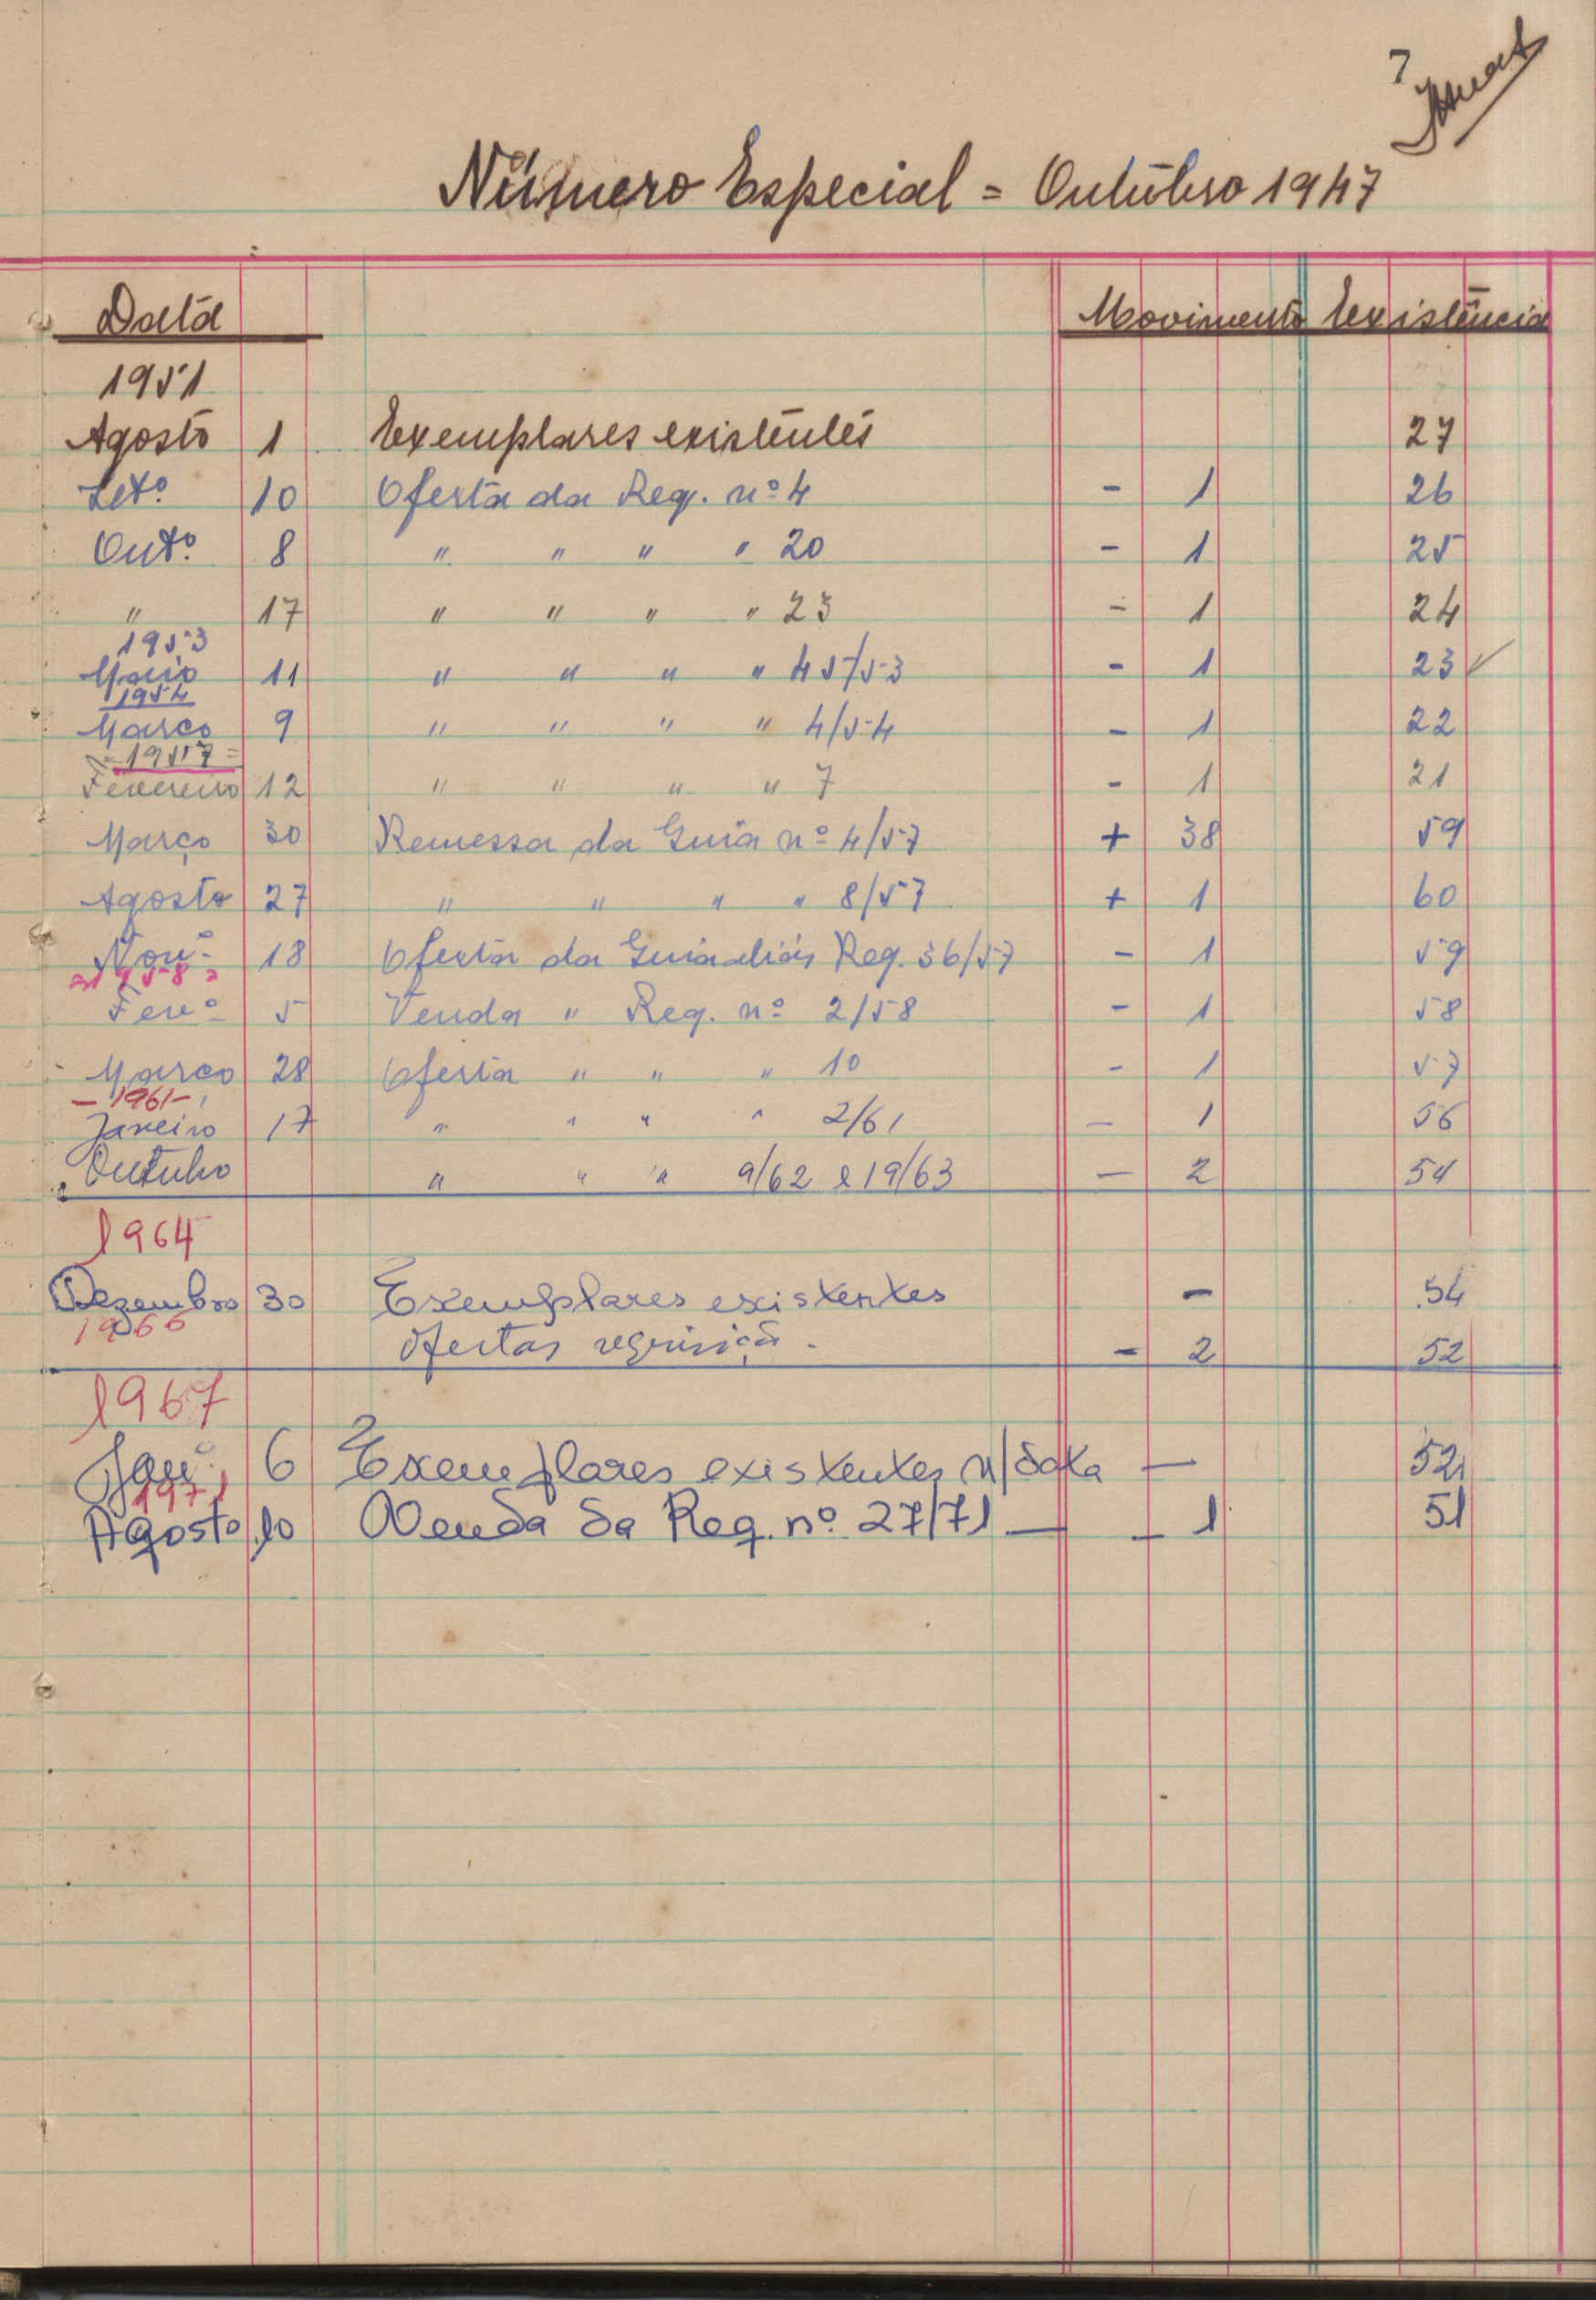 7
Número Especial = Outubro 1947
Data Movimento Existência
1951
Agosto 1 Exemplares existentes 27
Setº 10 Oferta da Req. nº 4 - 1 26
Outº 8 " " " " 20 - 1 25
" 17 " " " " 23 - 1 24
1953
Maio 11 " " " " 45/53 - 1 23 ✓
1954
Março 9 " " " " 4/54 - 1 22
= 1957 =
Fevereiro 12 " " " " 7 - 1 21
Março 30 Remessa da Guia nº 4/57 + 38 59
Agosto 27 " " " " 8/57 + 1 60
Novº 18 Oferta da Req. 36/57 - 1 59
= 1958 =
Fevº 5 Venda " Req. nº 2/58 - 1 58
Março 28 Oferta " " " 10 - 1 57
- 1961 -
Janeiro 17 " " " " 2/61 - 1 56
Outubro " " " 9/62 e 19/63 - 2 54
1964
Dezembro 30 Exemplares existentes - 54
1966
Ofertas requisiçã. - 2 52
1967
Janº 6 Exemplares existentes n/data - 52
1971
Agosto 10 Venda da Req. nº 27/71 - - 1 51